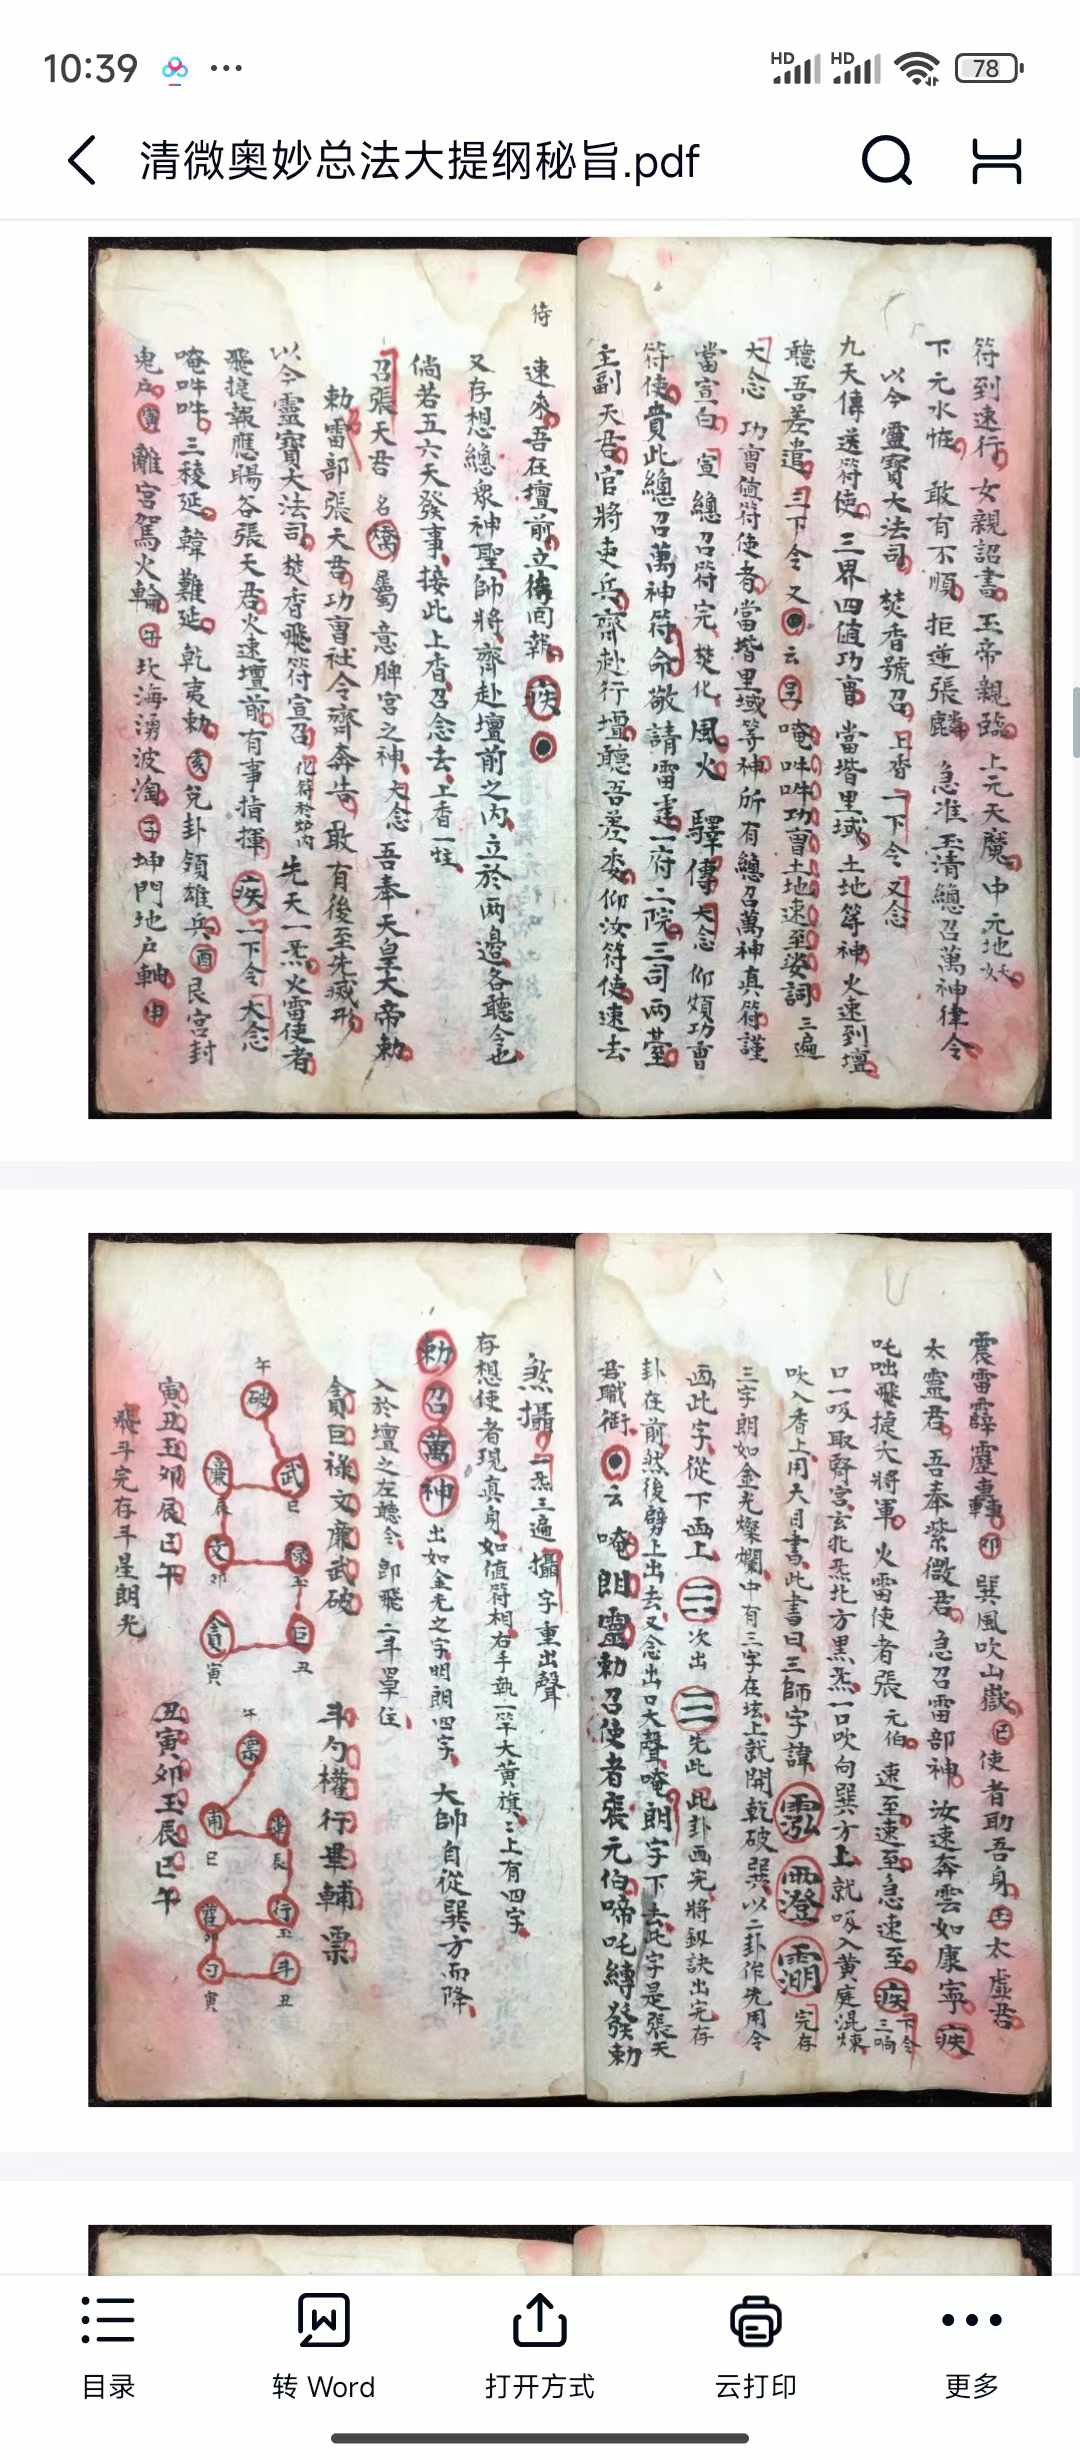 10:39
78
清微奥妙总法大提纲秘旨.pdf
符到速行 女親詔書 玉帝親臨 上元天魔 中元地妖
下元水怪 敢有不順 拒逆張鱗 急准玉清總召萬神律令
以今靈寶大法司 焚香號召 上香 一下令 又念
九天傳送符使 三界四值功曹 當堦里域 土地等神 火速到壇
聽吾差遣 三下令 又 云 唵吽吽功曹土地速至娑訶 三遍
大念 功曹值符使者當堦里域等神所有總召萬神真符謹
當宣白 宣總召符完 焚化 風火驛傳 大念 仰煩功曹
符使賫此總召萬神符命敬請雷霆一府二院三司兩臺
主副天君官將吏兵齊赴行壇聽吾差委仰汝符使速去
待
速來吾在壇前立待回報 疾
又存想總衆神聖帥將齊赴壇前之内立於两邊各聽令也
倘若五六天發事接此上香召念去上香一炷
召張天君 名 屬意脾宮之神 大念 吾奉天皇大帝勅
勅雷部張天君功曹社令齊奔告 敢有後至先滅形
以今靈寶大法司 焚香飛符宣召 化符於炉内 先天一炁火雷使者
飛捷報應暘谷張天君火速壇前有事指揮 疾 一下令 大念
唵吽吽 三稜延 韓難延 乾夷勅 亥 兌卦領雄兵 酉 艮宮封
鬼户 寅 離宮駕火輪 午 坎海湧波濤 子 坤門地户軸 申
震雷霹靂轟 卯 巽風吹山嶽 巳 使者助吾身 太虛君
太靈君 吾奉紫微君 急召雷部神 汝速奔雲如康寧 疾
吒咄飛捷大將軍 火雷使者張元伯 速至速至急速至 疾 下令三响
口一吸取腎宮玄北炁北方黑炁一口吹向巽方上就吸入黄庭混煉
吹入香上用大目書此書曰三師字諱 完存
三字朗如金光燦爛中有三字在壇上就開乾破巽以二卦作先用令
画此字從下画上 次出 先此 此卦画完將釼訣出完存
卦在前然後劈上出去又念出口大聲唵朗字下去此字是張天
君職銜 云 唵朗靈勅召使者張元伯啼吒縛發勅
煞攝 一炁三遍 攝字重出聲
存想使者現真身如值符相右手執一竿大黄旗上有四字
勅召萬神 出如金光之字明朗四字 大帥自從巽方而降
入於壇之左聽令 即飛二斗罩住
貪巨祿文廉武破 斗勺權行畢輔票
午
破
武
巳
廉
辰
文
卯
祿
巨
丑
貪
寅
午
票
甫
巳
畢
辰
行
權
卯
勺
寅
斗
丑
寅丑玉卯辰巳午 丑寅卯玉辰巳午
飛斗完存斗星朗光
目录
转 Word
打开方式
云打印
更多